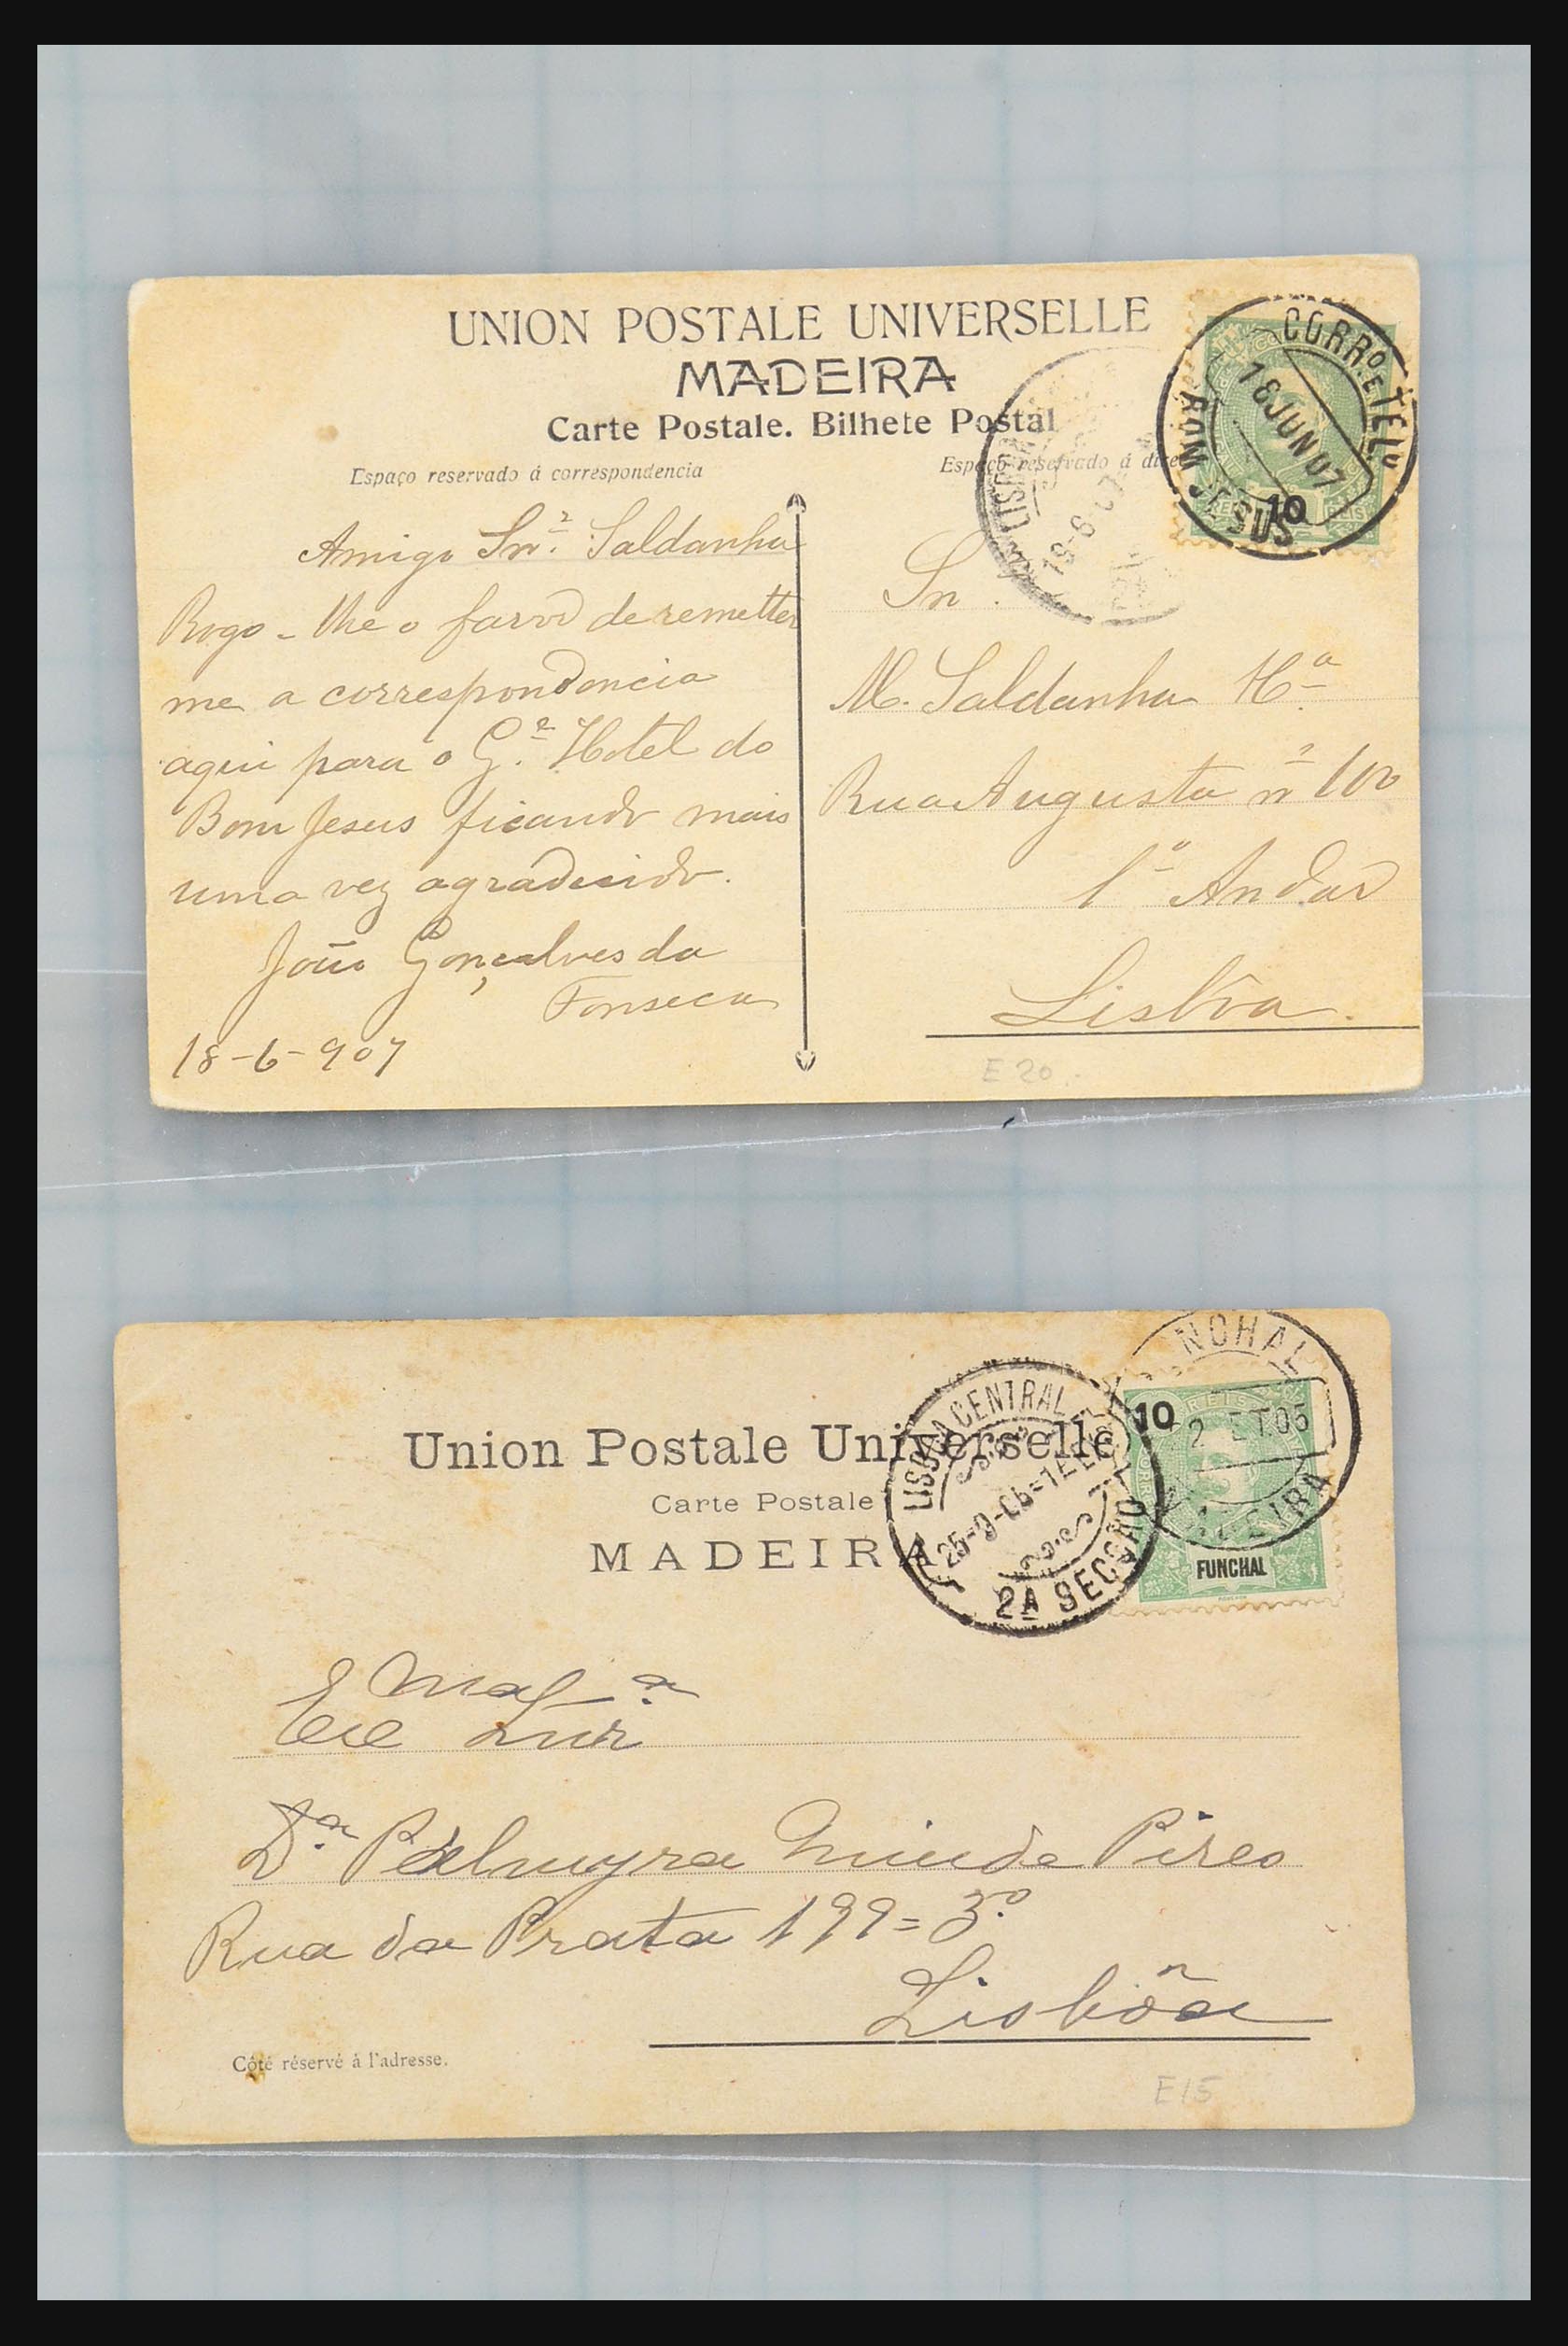 UNION POSTALE UNIVERSELLE
MADEIRA
Carte Postale. Bilhete Postal
Espaço reservado á correspondencia
Espaço reservado á dire
CORRO E TELO
18 JUN 07
BOM JESUS
10
LISBOA
Amigo Snr. Saldanha
Rogo-lhe o favor de remetter
me a correspondencia
aqui para o Ge. Hotel do
Bom Jesus ficando mais
uma vez agradecido.
João Gonçalves da
Fonseca
18-6-907
Snr.
M. Saldanha
Rua Augusta nº 100
1º Andar
Lisboa.
E 20
Union Postale Universelle
Carte Postale
MADEIRA
LISBOA CENTRAL
25-9-05
2A SECCAO
NCHAL
2 ET 05
10
REIS
FUNCHAL
Ema
Da. Palmyra Pires
Rua da Prata 199=3º
Lisbôa
Côté réservé à l'adresse.
E15